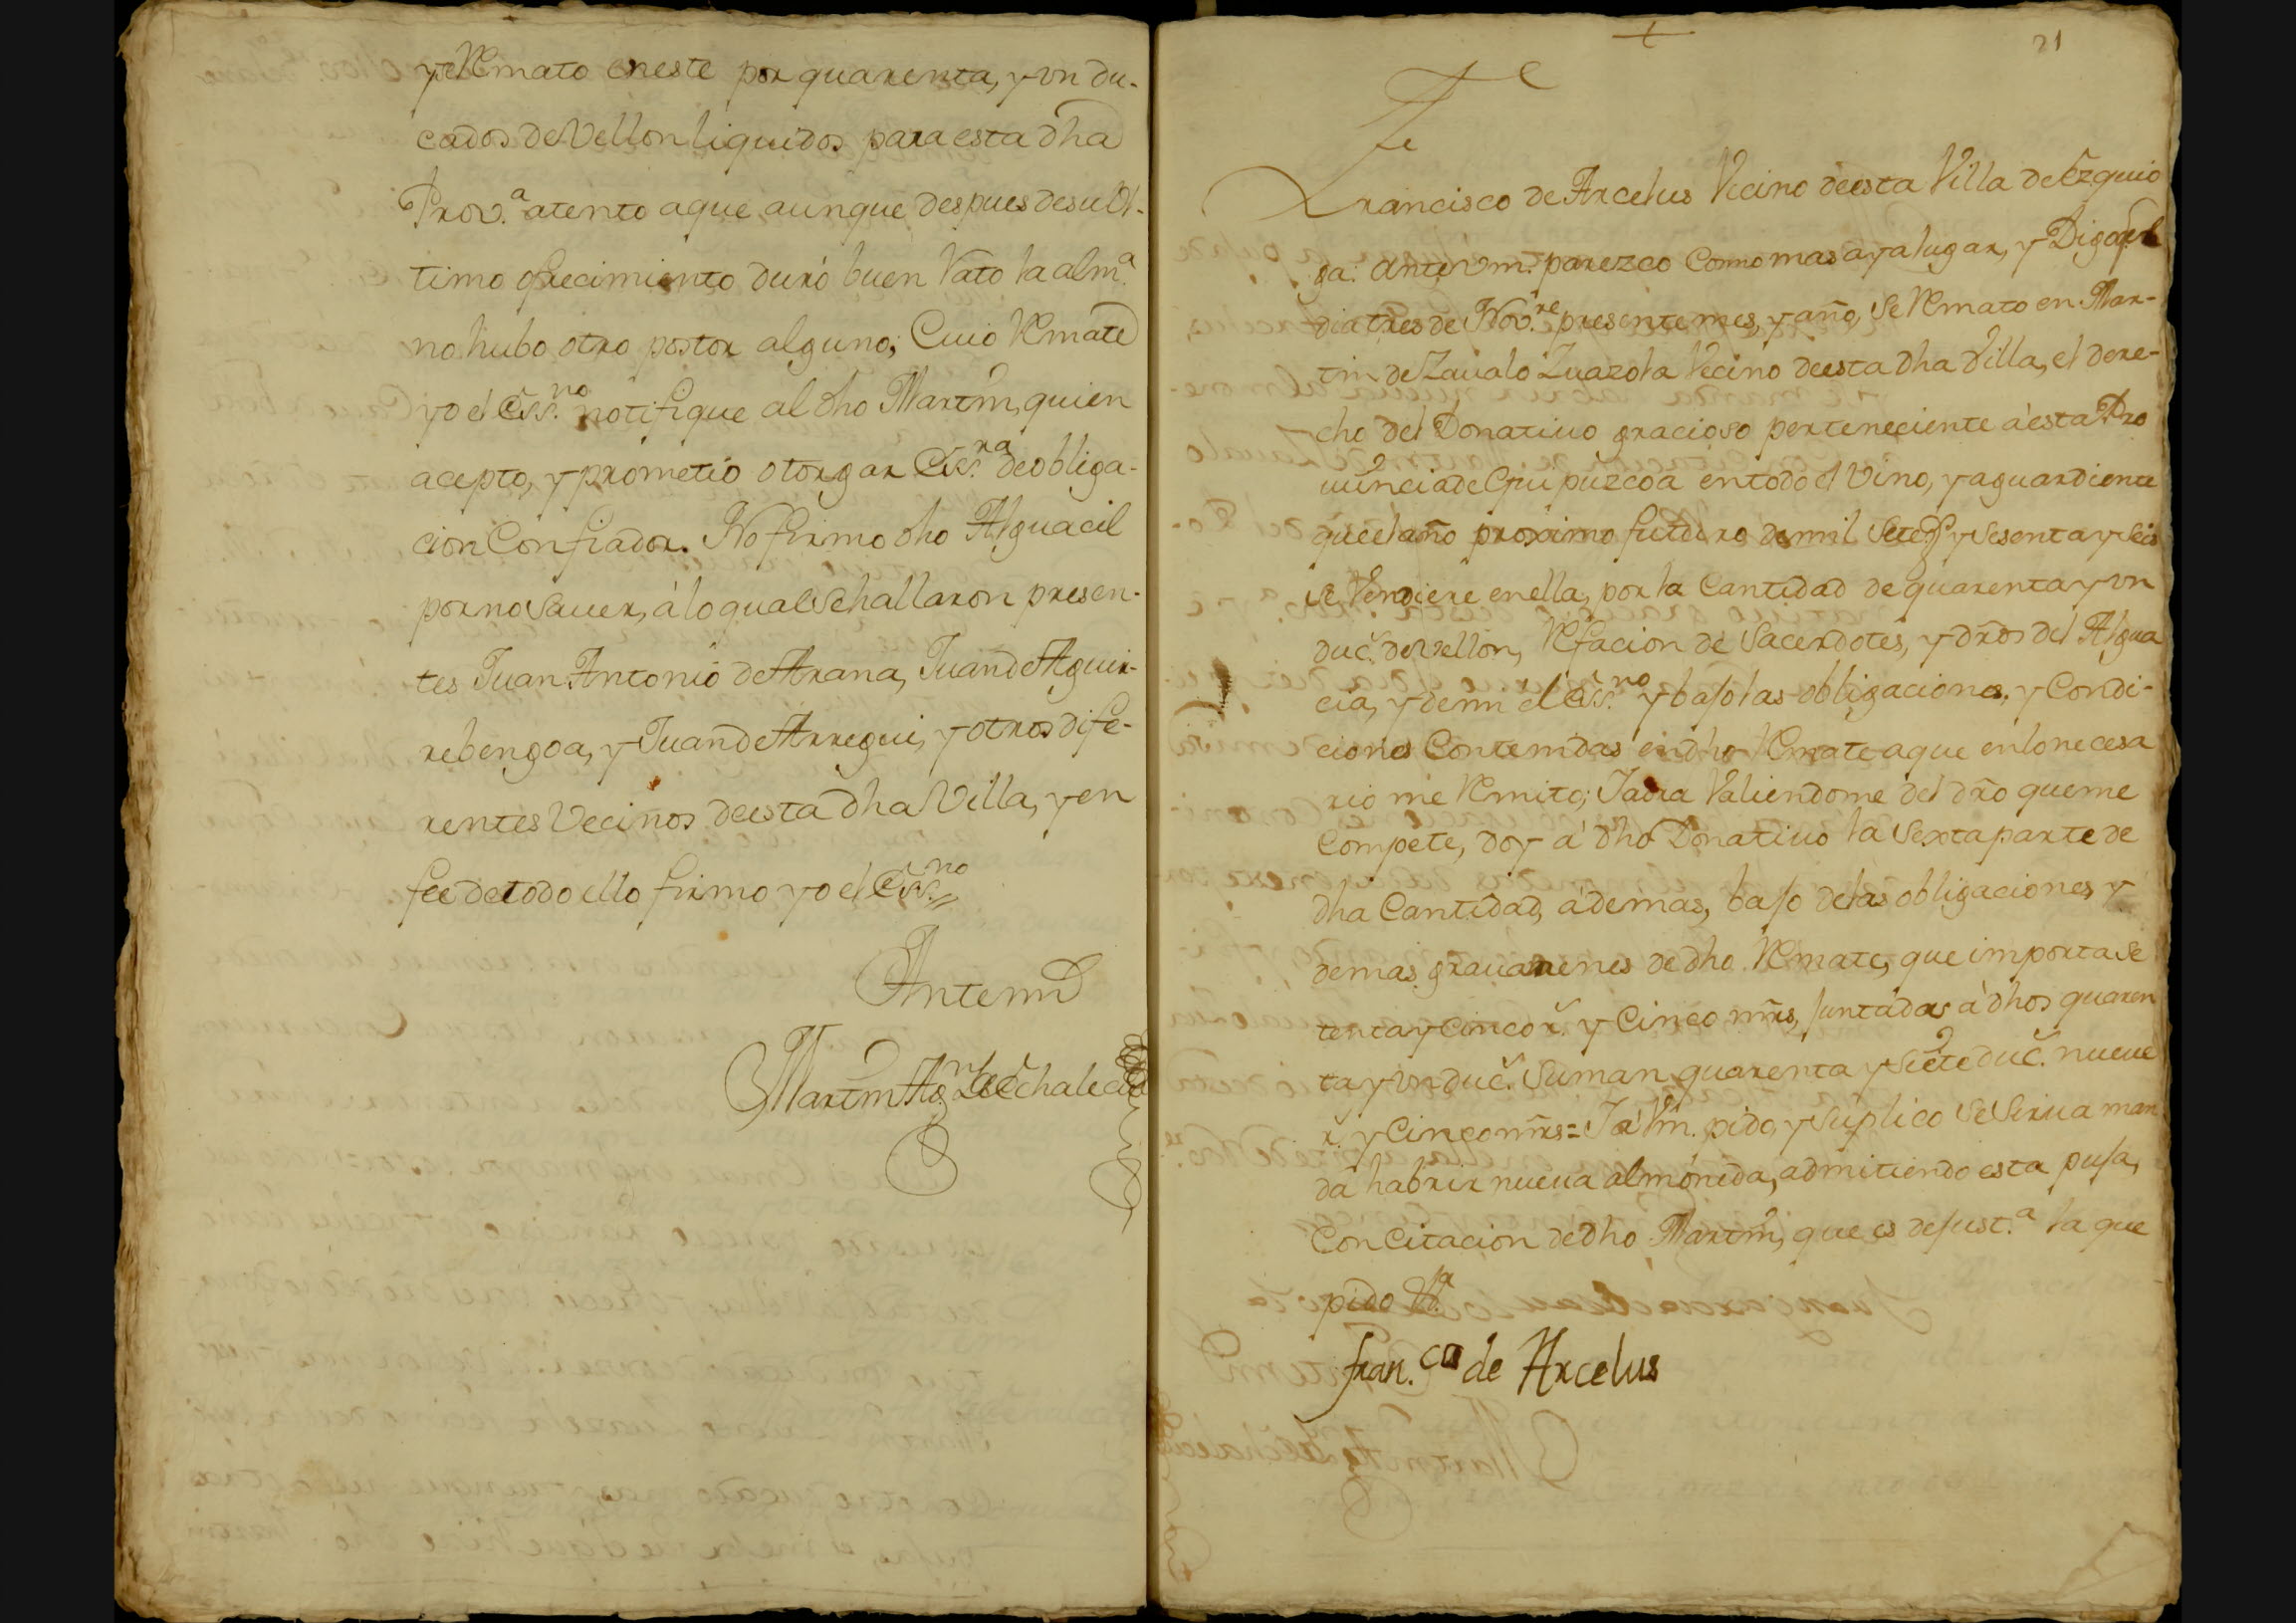 y Remato en este por quarenta, y vn du-
cados de Vellon liquidos para esta dha
Prov.ª atento aque aunque despues de su Vl-
timo ofrecimiento duró buen Rato la alm.ª
no hubo otro postor alguno; Cuio Remate
yo el Ess.no notifique al dho Martin, quien
acepto, y prometió otorgar Ess.ra de obliga-
cion Con fiador. No firmo dho Alguacil
por no Sauer, á lo qual Se hallaron presen-
tes Juan Antonio de Arana, Juan de Aguir-
rebengoa, y Juan de Arregui, y otros dife-
rentes Vecinos de esta dha Villa, y en
fee de todo ello firmo yo el Ess.no
Antemi
Martin Ag.n de Echalecu
21
Francisco de Arcelus Vecino de esta Villa de Ezquio
ga: ante vm. parezco Como mas aya lugar, y Digo q.e el
dia tres de Nov.re presente mes, y año, Se Remato en Mar-
tin de Zaualo Zuazola Vecino de esta dha Villa, el dere-
cho del Donatiuo gracioso perteneciente á esta Pro
uincia de Guipuzcoa en todo el Vino, y aguardiente
que el año proximo futuro de mil Setez.s y Sesenta y Seis
se Vendiere en ella, por la Cantidad de quarenta y vn
duc.s de vellon, Refacion de Sacerdotes, y dros del Algua
cil, y de mi el Ess.no y bajo las obligaciones, y Condi-
ciones Contenidas en dho Remate aque en lo necesa
rio me Remito; Iaora Valiendome del dro que me
Compete, doy á dho Donatiuo la Sexta parte de
dha Cantidad, ádemas, bajo de las obligaciones y
demas grauamenes de dho Remate, que importa Se
tenta y Cinco r.s y Cinco mrs, Juntadas á dhos quaren
ta y vn duc.s Suman quarenta y Siete duc.s nueue
r.s y Cinco mrs = I á Vm. pido, y Suplico Se Sirua man
da habrir nueua almoneda, admitiendo esta puja,
Con Citacion de dho Martin, que es de Just.ª la que
pido
fran.co de Arcelus